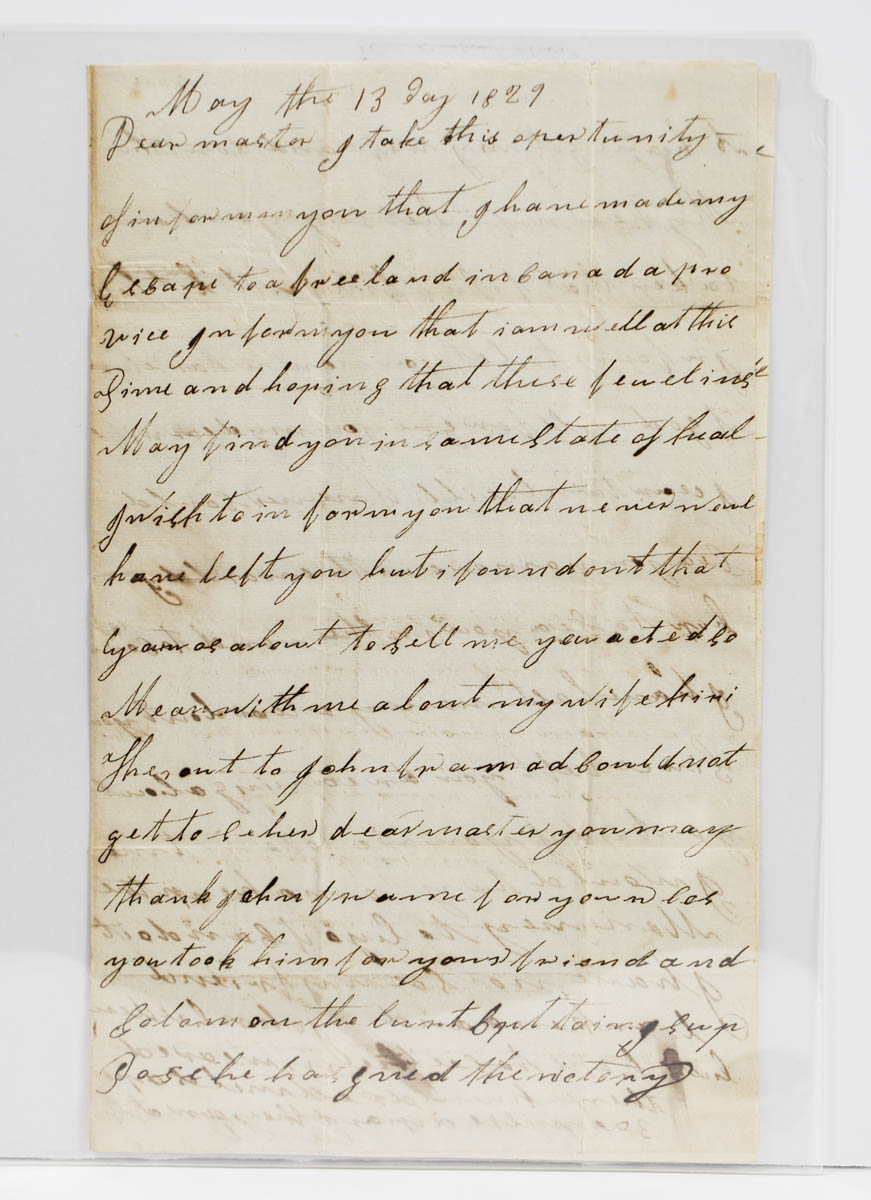 May the 13 day 1829
Dear master I take this opertunity
of inform you that I have made my
Escape to a free land in Canada pro
vice Inform you that i am well at this
Time and hoping that these few lines
May find you in same State of heal
I wish to inform you that never woul
have left you but i found out that
about to sell me you acted so
Mean with me about my wife hiri
her out to John frama Could not
get to se her dear master you may
thank John frame for your los
you took him for your friend and
Solomon the I sup
Pose he has the victory